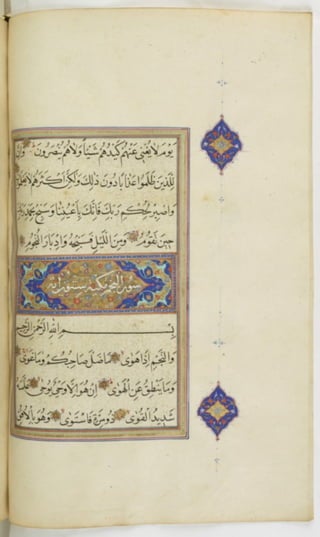 يَوْمَ لَا يُغْنِي عَنْهُمْ كَيْدُهُمْ شَيْئًا وَلَا هُمْ يُنْصَرُونَ وَإِنَّ
لِلَّذِينَ ظَلَمُوا عَذَابًا دُونَ ذَٰلِكَ وَلَٰكِنَّ أَكْثَرَهُمْ لَا يَعْلَمُونَ
وَاصْبِرْ لِحُكْمِ رَبِّكَ فَإِنَّكَ بِأَعْيُنِنَا وَسَبِّحْ بِحَمْدِ رَبِّكَ
حِينَ تَقُومُ وَمِنَ اللَّيْلِ فَسَبِّحْهُ وَإِدْبَارَ النُّجُومِ
سورة النجم مكية ستون آية
بِسْمِ اللَّهِ الرَّحْمَٰنِ الرَّحِيمِ
وَالنَّجْمِ إِذَا هَوَىٰ مَا ضَلَّ صَاحِبُكُمْ وَمَا غَوَىٰ
وَمَا يَنْطِقُ عَنِ الْهَوَىٰ إِنْ هُوَ إِلَّا وَحْيٌ يُوحَىٰ عَلَّمَهُ
شَدِيدُ الْقُوَىٰ ذُو مِرَّةٍ فَاسْتَوَىٰ وَهُوَ بِالْأُفُقِ